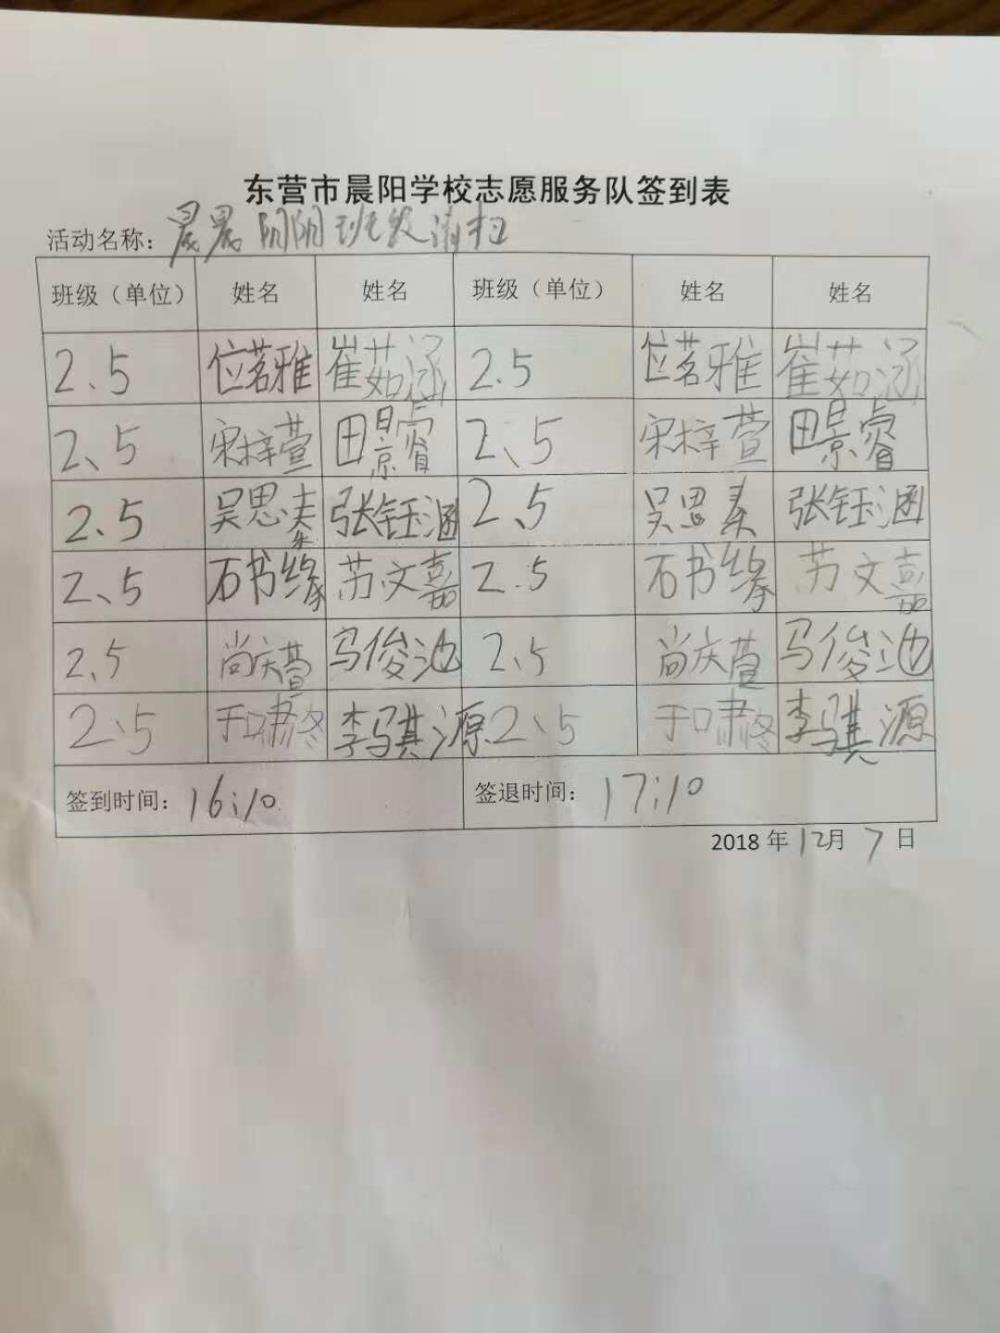 东营市晨阳学校志愿服务队签到表
活动名称：晨晨阳阳班级清扫
班级（单位） 姓名 姓名 班级（单位） 姓名 姓名
2、5 位茗雅 崔茹涵 2.5 位茗雅 崔茹涵
2、5 宋梓萱 田景睿 2、5 宋梓萱 田景睿
2.5 吴思 张钰涵 2、5 吴思 张钰涵
2、5 石书缘 苏文嘉 2.5 石书缘 苏文嘉
2、5 尚庆萱 马俊池 2、5 尚庆萱 马俊池
2、5 于啸冬 李骐源 2、5 于啸冬 李骐源
签到时间：16:10 签退时间：17:10
2018年12月7日